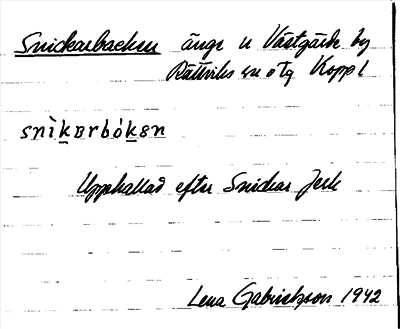 Snickarbacken änge n Västgärde by
Rättviks sn o tg Kopp l
snìkɐrbókən
Uppkallad efter Snickar Jerk
Lena Gabrielsson 1942